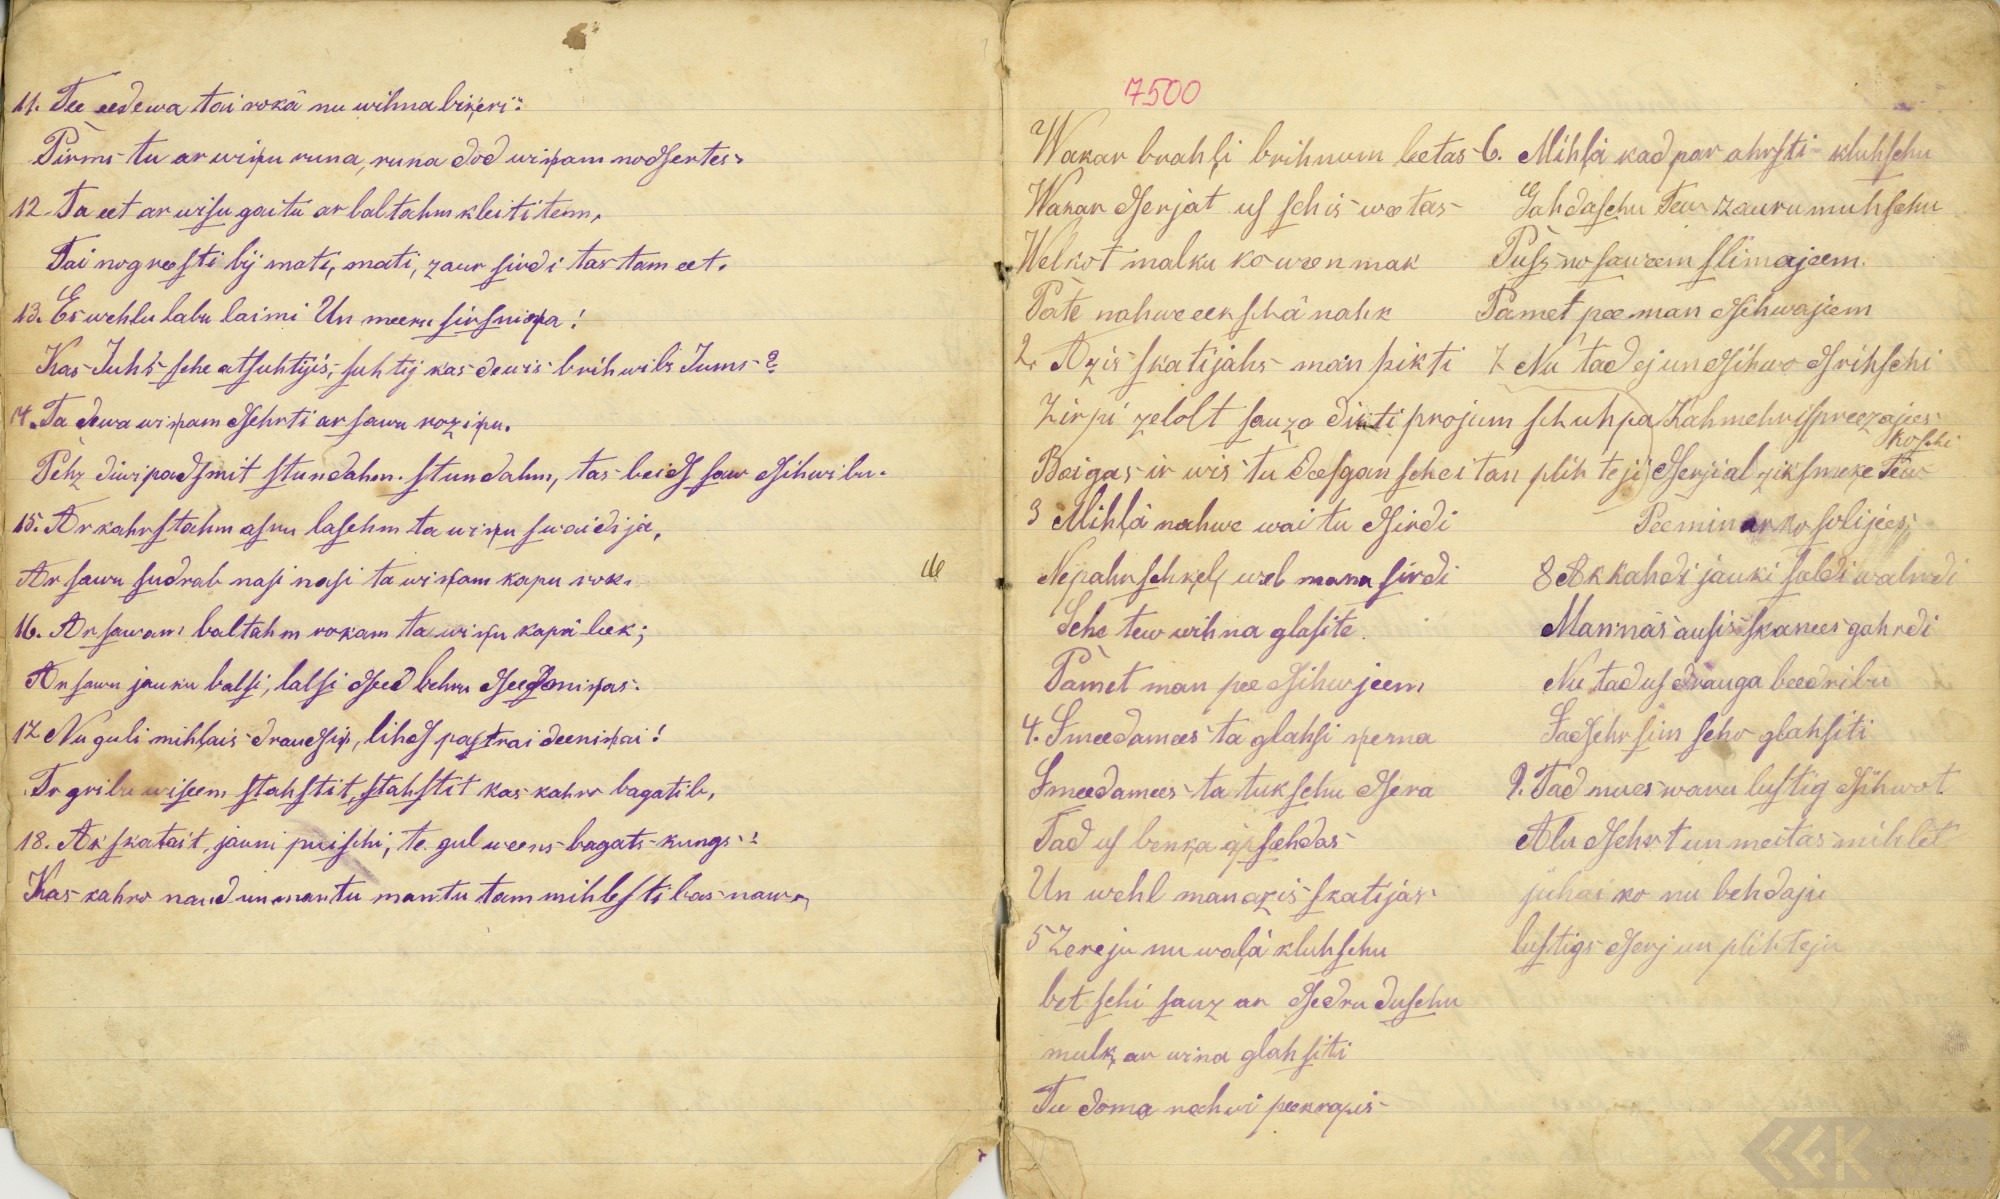 11. Tee eedewa tai rokâ nu wihna biķeri:
Pirms tu ar wiņu runa, runa dod wiņam nodsertes.
12. Ta eet ar wisu gaitu ar baltahm kleititem,
Tai nogreesti bij mati, mati, zaur sirdi tas tam eet.
13. Es wehlu labu laimi Un meeru sirsniņa!
Kas Juhs sche atsuhtijis, suhtij kas dewis brihwibs Jums?
14. Ta dewa wiņam dsehrti ar sawu roziņu.
Pehz diwipadsmit stundahm stundahm, tas beids saw dsihwibu.
15. Ar kahrstahm asru lasehm ta wiņu swaidija,
Ar sawu sudrab nasi nasi ta wiņam kapu rok.
16. Ar sawam baltahm rokam ta wiņu kapâ leek;
Ar sawu jauku balsi, balsi dseed behru dseesmiņas.
17 Nu guli mihļais draudsiņ, lihds pastrai deeniņai!
Tr gribu wiseem stahstit, stahstit kas kahro bagatib,
18. Ak skatait, jauni puischi, te gul weens bagats kungs:
Kas kahro naud un mantu mantu tam mihlestibas naw.
16
7500
Wakar brahļi brihnum leetas
Wakar dserjat us schis weetas
Welkot malku ko ween mak
Pate nahwe eekschâ nahk
2. Azis skatijahs man pikti
Zirpi zelolt sauza dikti projum schuhpa
Beigas ir wis tu deesgan schei tan plihteji
3 Mihļa nahwe wai tu dsirdi
Nepahrschķeļ wel mana sirdi
Sche tew wihna glasite
Pamet man pee dsihwjeem
4. Smeedamees ta glahsi ņerma
Smeedamees ta tukschu dsera
Tad us benķa apsehdas
Un wehl man azis skatijas
5 Zereju nu waļâ kluhschu
bet schi sauz ar dsedru duschu
mulķ ar wina glahsiti
Tu doma nahwi peekrapis
6. Mihļâ kad par ahrsti kluhschu
Gahdaschu Tew zauru muhschu
Puss no saweem slimajeem
Pamet pee man dsihwajiem
7 Nu tad ej un dsihwo drihschi
Kahmehr ispreezajees
koschi
dserji al ziksmeke Tew
Pee minar ko solijees
8 Ak kahdi jauki saldi wahrdi
Mannâs ausis skanees gahrdi
Nu tad us drauga beedribu
Isdsehrsim scho glahsiti
9. Tad mues waru lustig dsihwot
Alu dsehrt un meitas mihlet
juhai ko nu behdaju
lustigs dserj un plihteju